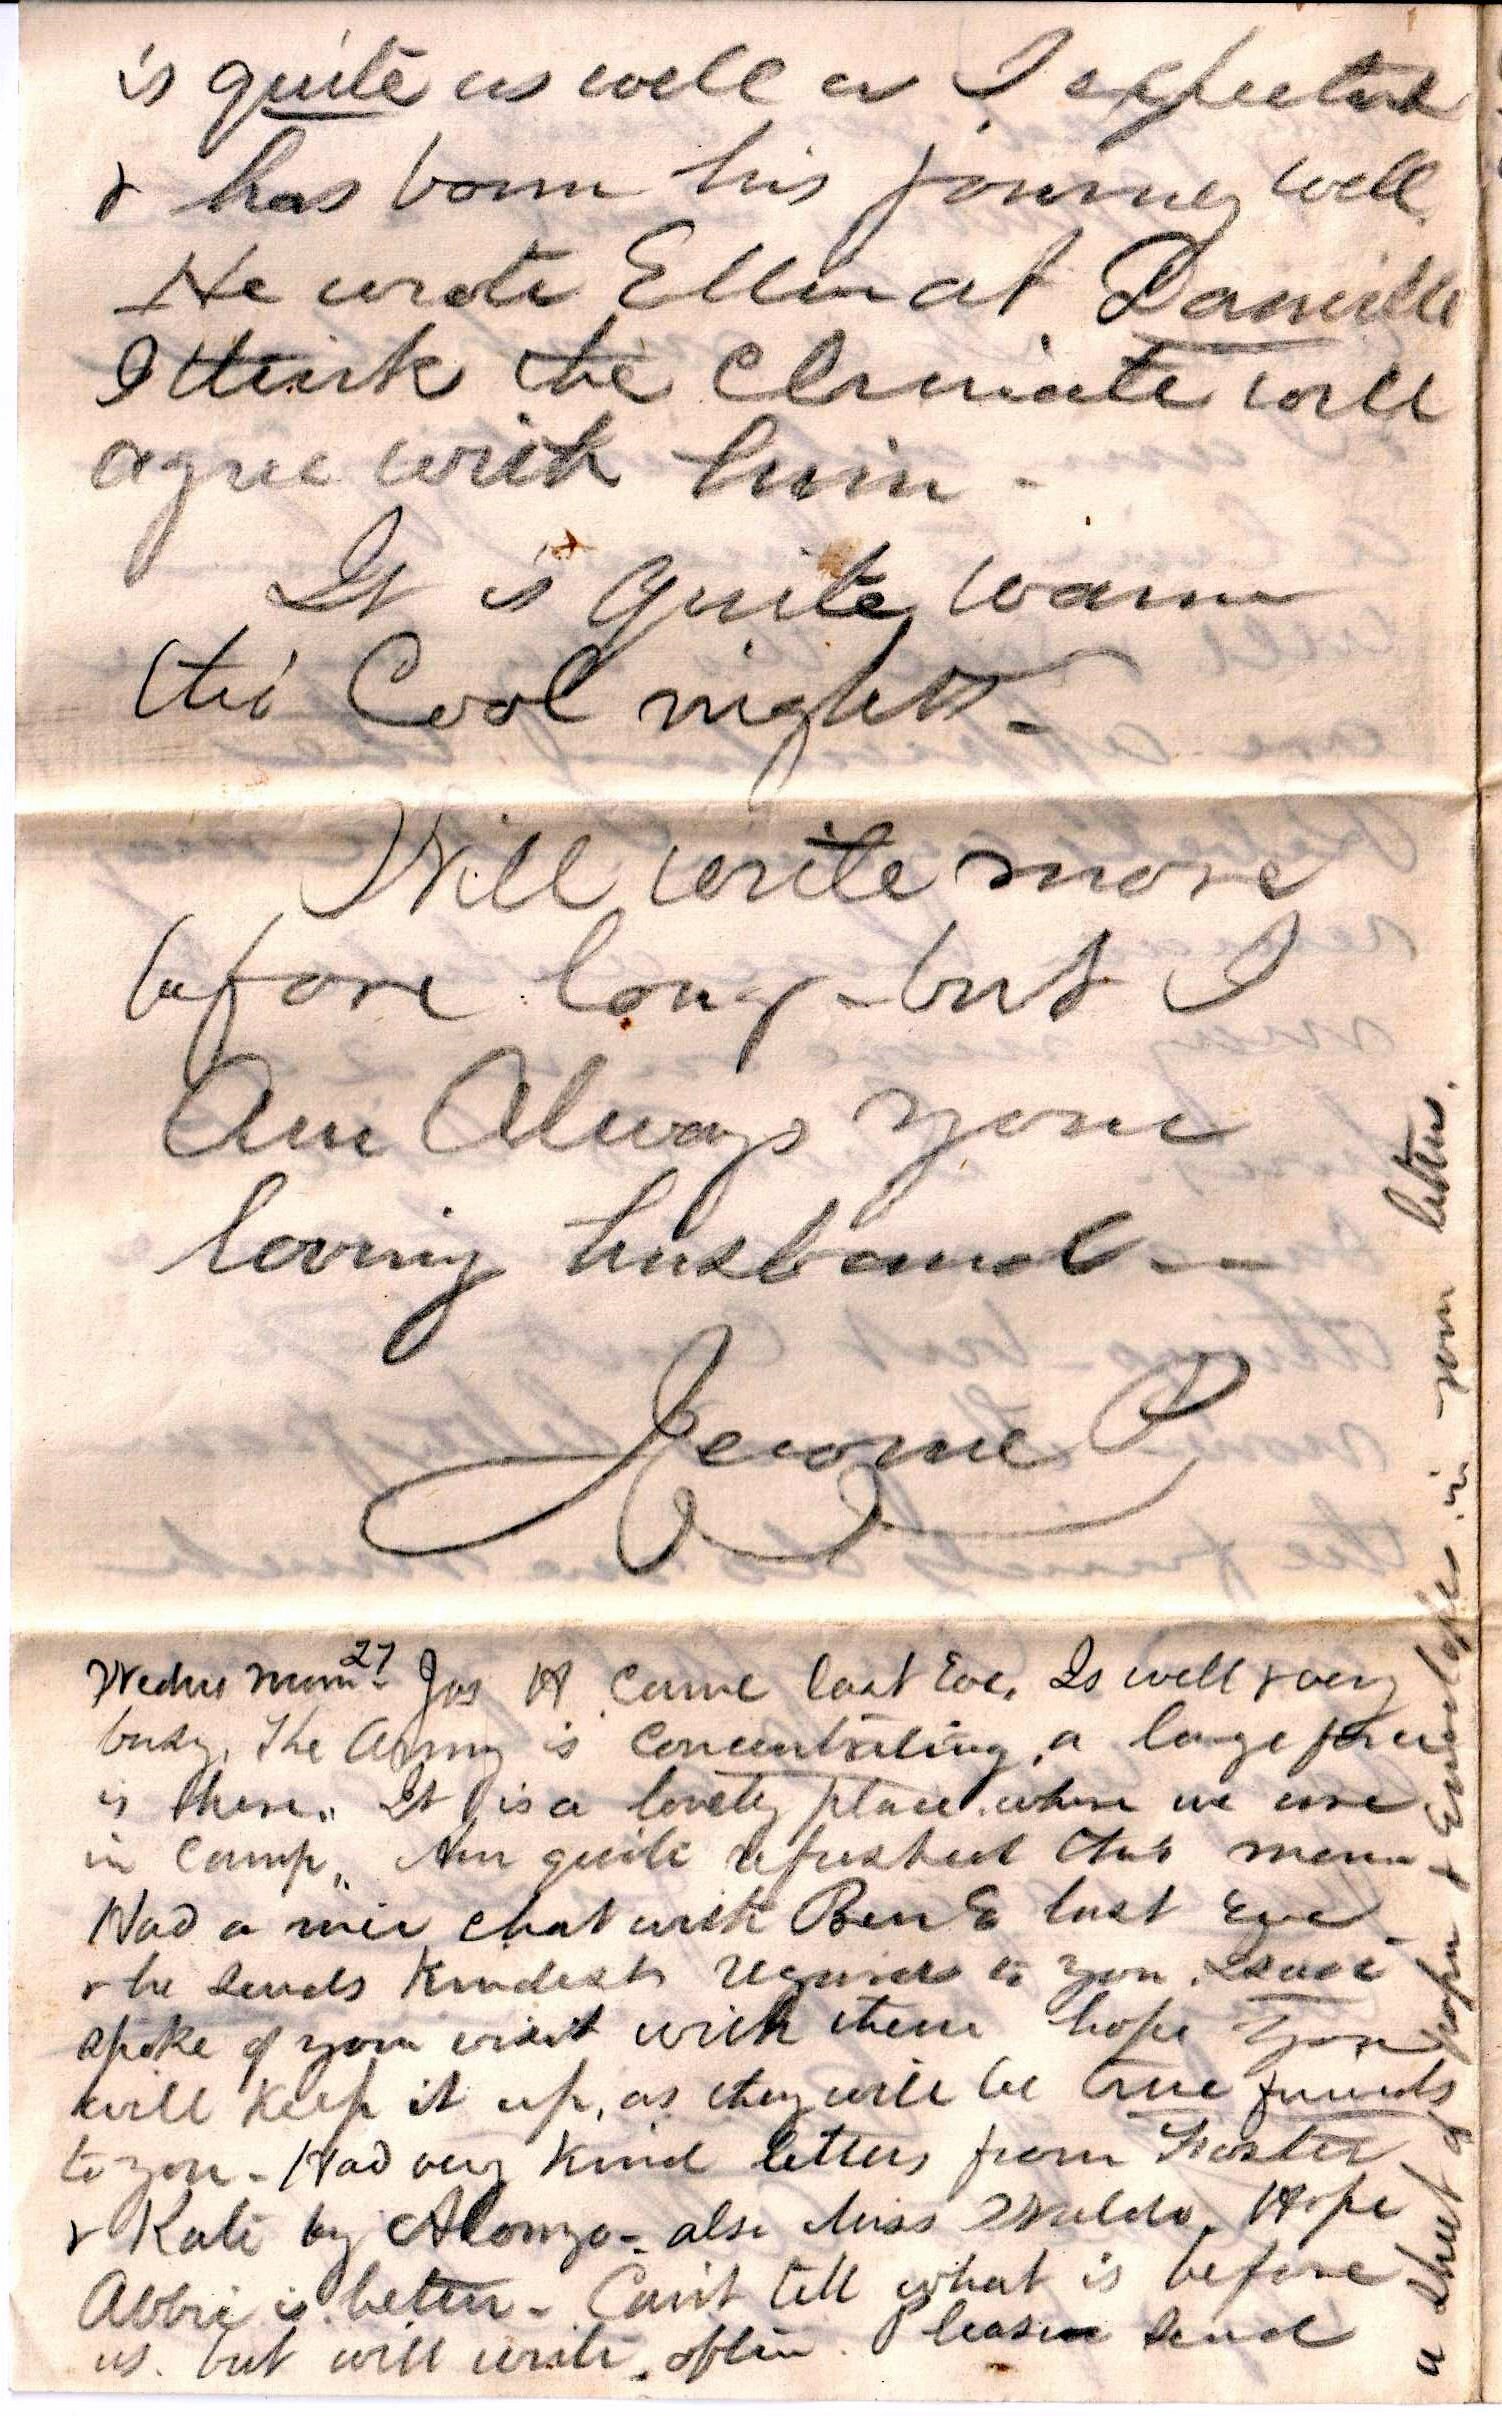 is quite as well as I expected
& has born his journey well.
He wrote Ellen at Danville
I think the Climate will
agree with him -
It is quite warm
tho' Cool nights -
Will write more
before long - but I
Am Always your
loving husband --
Jerome P
Wednes morn 27 - Jas H came last Eve. Is well & very
busy. The Army is concentrating, a large force
is here. It is a lovely place where we are
in Camp. Am quite refreshed this morn -
Had a nice chat with Ben E last Eve -
& he sends kindest regards to you.
spoke of your visit with them hope you
will keep it up, as they will be true friends
to you - Had very kind letters from Foster
& Kate by Alonzo - also Miss Waldo. Hope
Abbie is better - Can't tell what is before
us. but will write often. Please send
a sheet of paper & Envelopes in your letters.